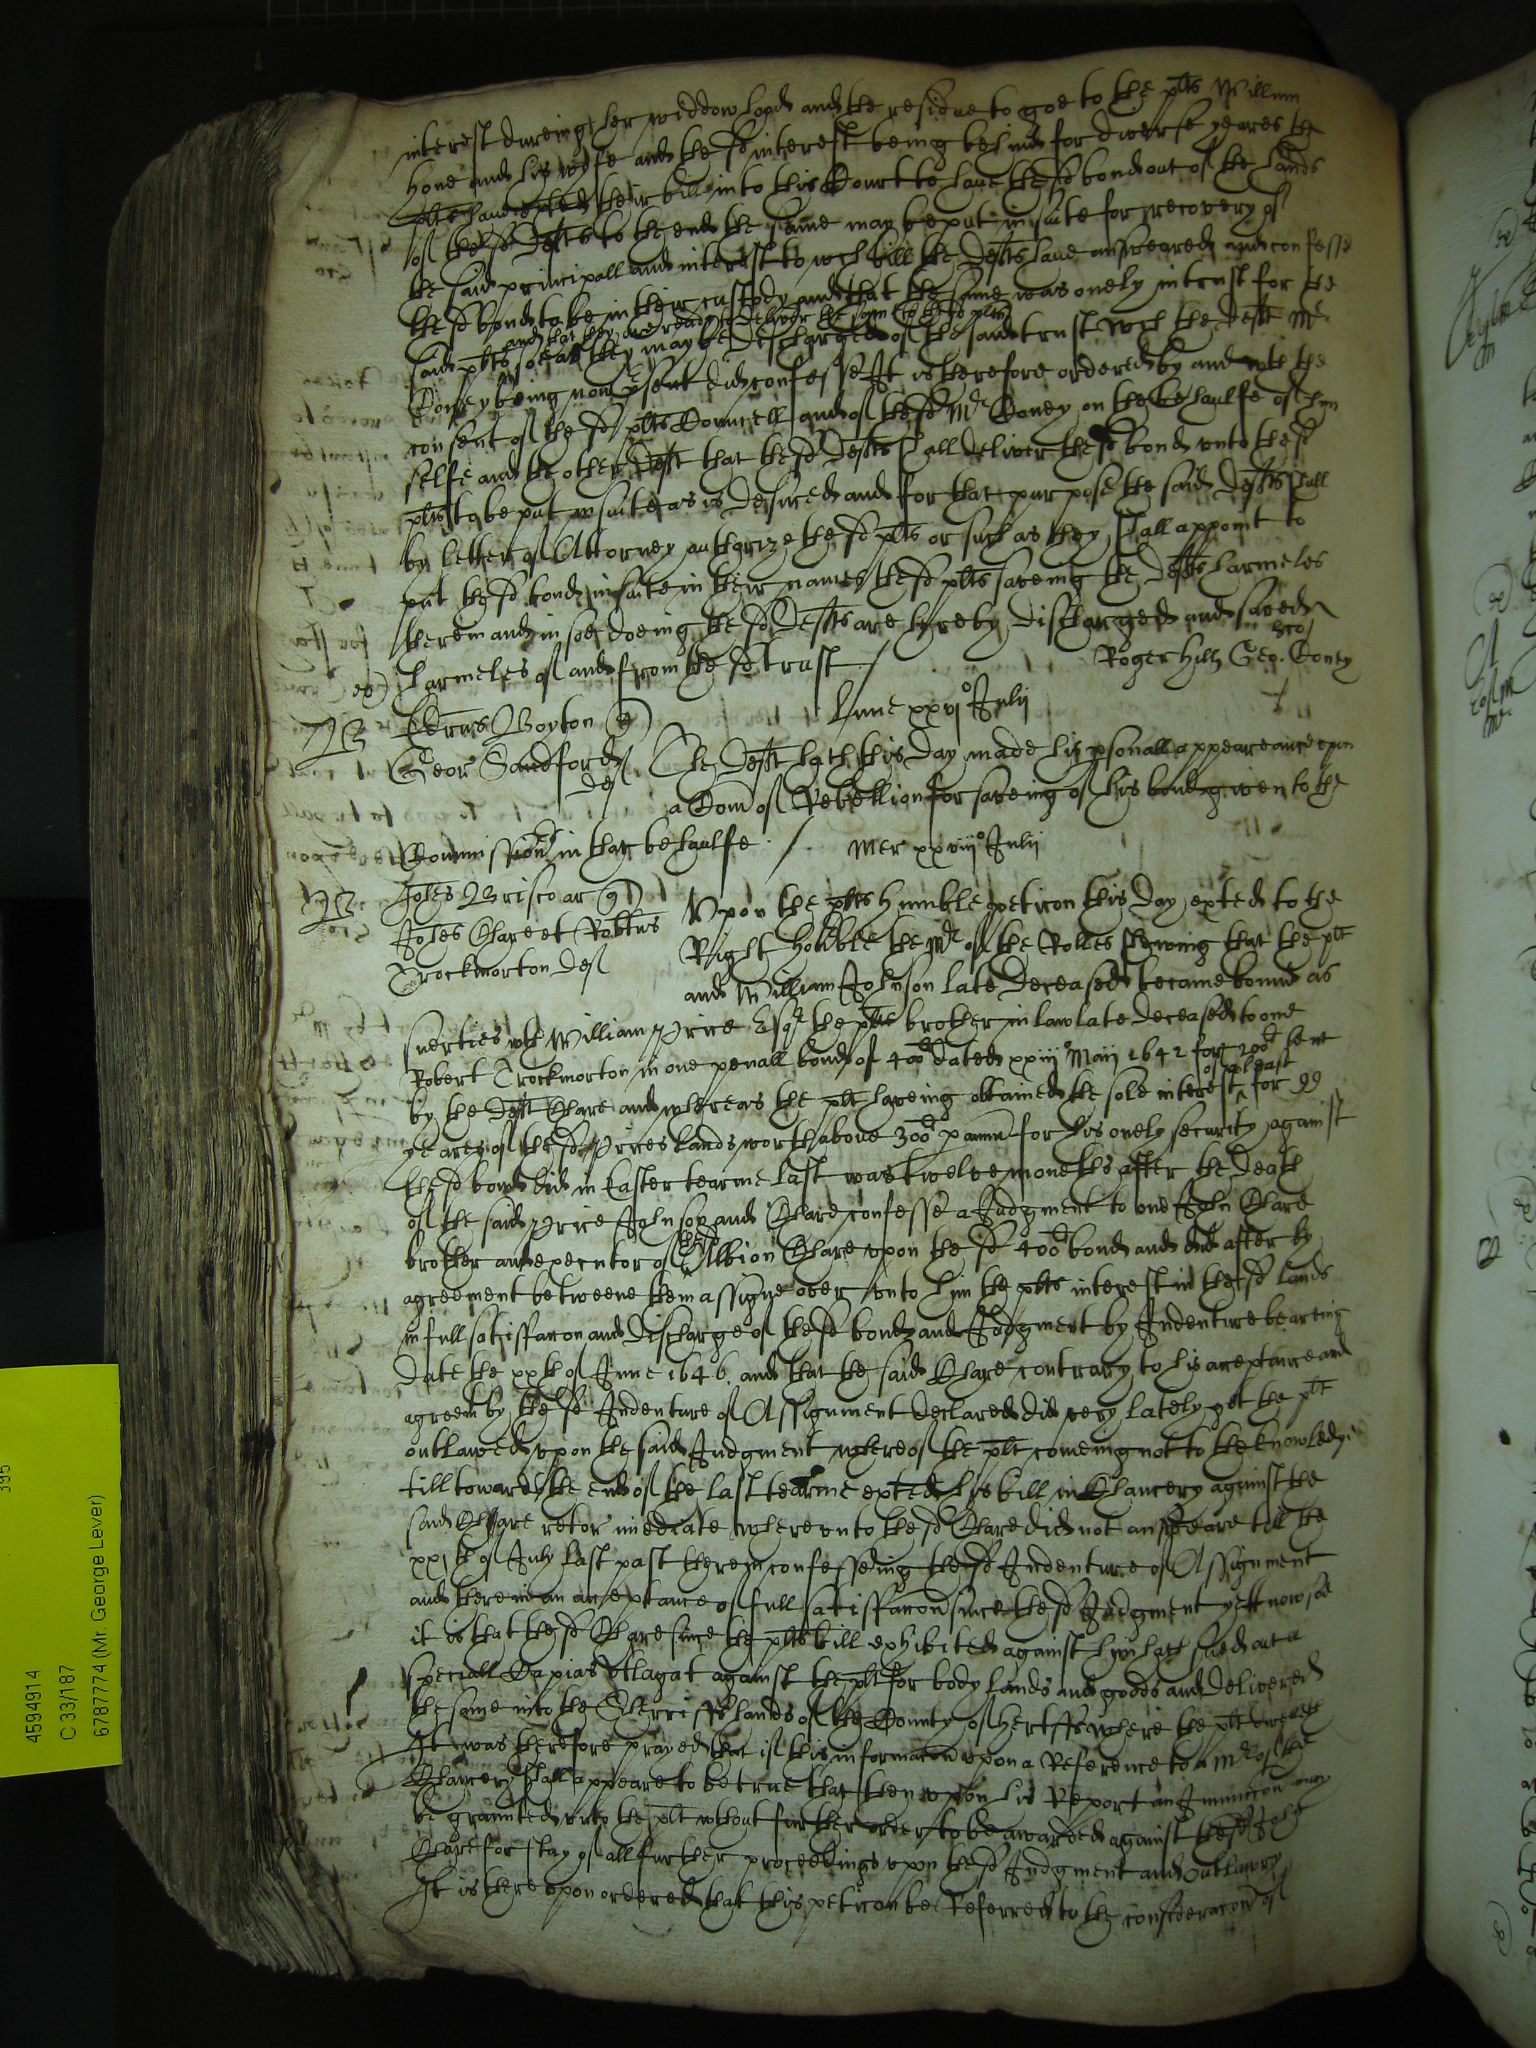 interest dureing her widdowhood and the residue to goe to the plts William
Hone and his wyfe and the sd interest being behind for diverse yeares the
plts have exted their bill into this Court to have the sd bond out of the hands
of the sd Defts to the end the same may be put in suite for recovery of
the said principall and interest to wch bill the Defts have answeared and confesse
the sd bond to be in their custody and that the same was onely in trust for the
and that they are ready to deliver the same to the sd plts
said plts soe as they may be discharged of the said trust wch the Deft Mr
Coney being now psent did confesse It is therefore ordered by and wth the
consent of the sd plts Councell and of the sd Mr Coney on the behaulfe of him
selfe and the other Deft that the sd Defts shall deliver the sd bond unto the sd
plts to be put in suite as is desired and for that purpose the said Defts shall
by letter of Attorney authorize the sd plts or such as they shall appoint to
put the sd bond in suite in their names the sd plts saveing the Defts harmeles
therein and in soe doeing the sd Defts are hereby discharged and saved
harmeles of and from the sd trust /
Roger Hill Geo. Coney
Lune xxvi o Julii
Boyton q
Geor Sandford
def
The Deft hath this day made his psonall appeareance upon
a Com of Rebellion for saveing of his bond given to the
Commissionrs in that behaulfe /
Mer xxviii o Julii
Johes Briscoe ar q
Johes Clare et Robtus
Trockmorton def
Upon the plts humble peticon this day exted to the
Right honble the Mr of the Rolles shewing that the plt
and William Johnson late deceased became bound as
suerties wth William Price Esqr the plts brother in law late deceased to one
Robert Trockmorton in one penall bond of 400l dated xxiii Maii 1642 for 200l lent
of a lease
by the Deft Clare and whereas the plt haveing obtained the sole interest for 99
yeares of the sd Prices lands worth above 300l p annu for his onely security against
the sd bond did in Easter tearme last was twelve moneths after the death
of the said Price Johnson and Clare confesse a Judgment to one John Clare
brother and executor of the sd Albion Clare upon the sd 400l bond and did after by
agreement betweene them assigne over unto him the plts interest in the sd lands
in full satisfaccon and discharge of the sd bond and Judgment by Indenture bearing
date the xxth of June 1646. and that the said Clare contrary to his acceptance and
agreemt by the sd Indenture of Assignment declared did very lately get the plt
outlawed upon the said Judgment whereof the plt comeing not to the knowledge
till towards the end of the last tearme exted his bill in Chancery against the
said Clare retor imediate whereunto the sd Clare did not answeare till the
xxith of July last past therein confesseing the sd Indenture of Assignment
and therein an acceptance of full satisfaccon since the sd Judgment yett now soe
it is that the sd Clare since the plts bill exhibited against him hath sued out a
speciall Capias Utlagat against the plt for body lands and goods and delivered
the same into the Sherriffs hands of the County of Hertfs where the plt dwelleth
It was therefore prayed that if this informacon upon a Reference to a Mr of the
Chancery shall appeare to be true that then upon his Report an Iniunccon may
be graunted unto the plt wthout further order to be awarded against the sd John
Clare for stay of all further proceedings upon the sd Judgment and outlawry
It is thereupon ordered that this peticon be Referred to the consideracon of
395
4594914
C 33/187
6787774 (Mr. George Lever)